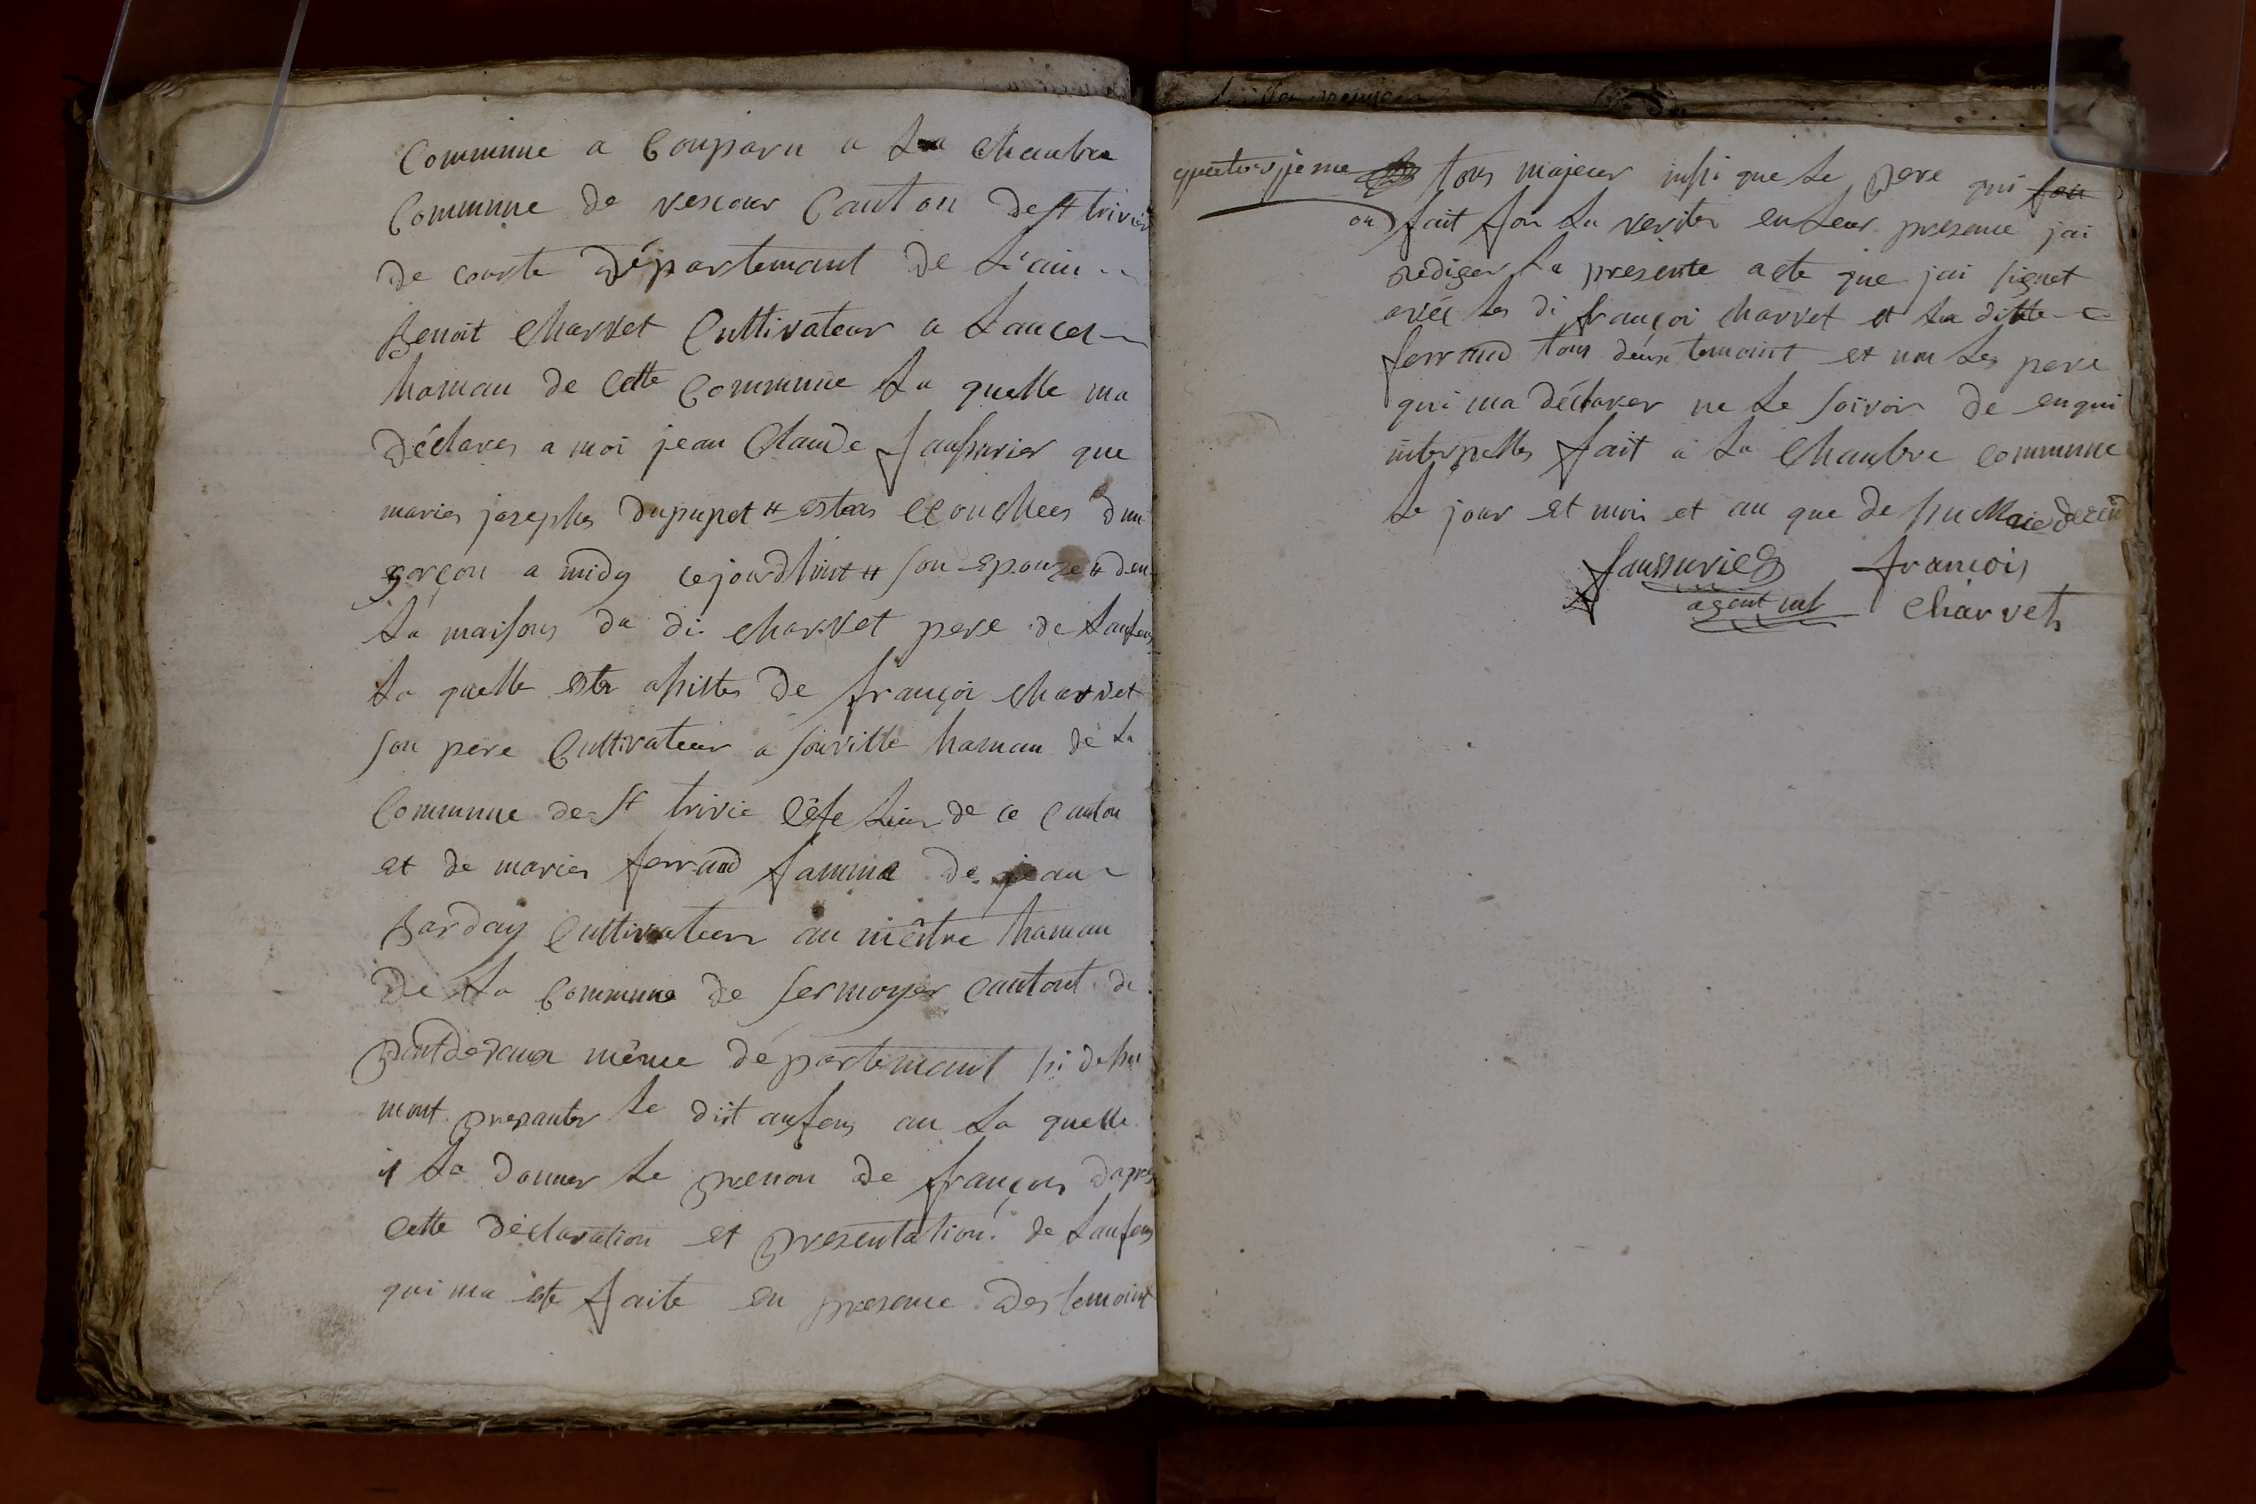 Commune a Comparu a La Chambre
Commune de vescour Canton de st trivier
de courte département de L'ain
Benoit Charvet Cultivateur a Lancel
hamau de Cette Commune La quelle ma
déclarer a moi jean Claude faussurier que
maries josephes dupupet # estes ecouchees dun
garçon a midy cejourdhuit # son epouze # dan
La maisons du di charvet pere de Lanfens
La quelle ester assistes de françoi charvet
son pere Cultivateur a souville hamau de La
Commune de st trivie Cefe Lieu de ce Canton
et de maries ferrand famme de jean
Barday Cultivateur au mêtre hamau
De La Commune de sermoyer Cantont de
pontdevaux même département si dessu
mont presanter Le dit anfens au La quelle
il La donner Le prenon de françois dapres
Cette déclaration et presentation de Lanfens
qui ma ete faite en presence des temoint
quatorsjeme tous majeur insi que Le pere qui son
on fait for La veriter en Leur presence jai
rediger La presente acte que jai signet
avec Les di françoi charvet et La ditte
ferrand tous deux temoint et non Les pere
qui ma déclarer ne Le soivoir de enqui
interpelles fait a La Chambre commune
Le jour et mois et an que de su
faussurier françois
agent Charvet